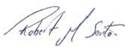 Robert M Sexton